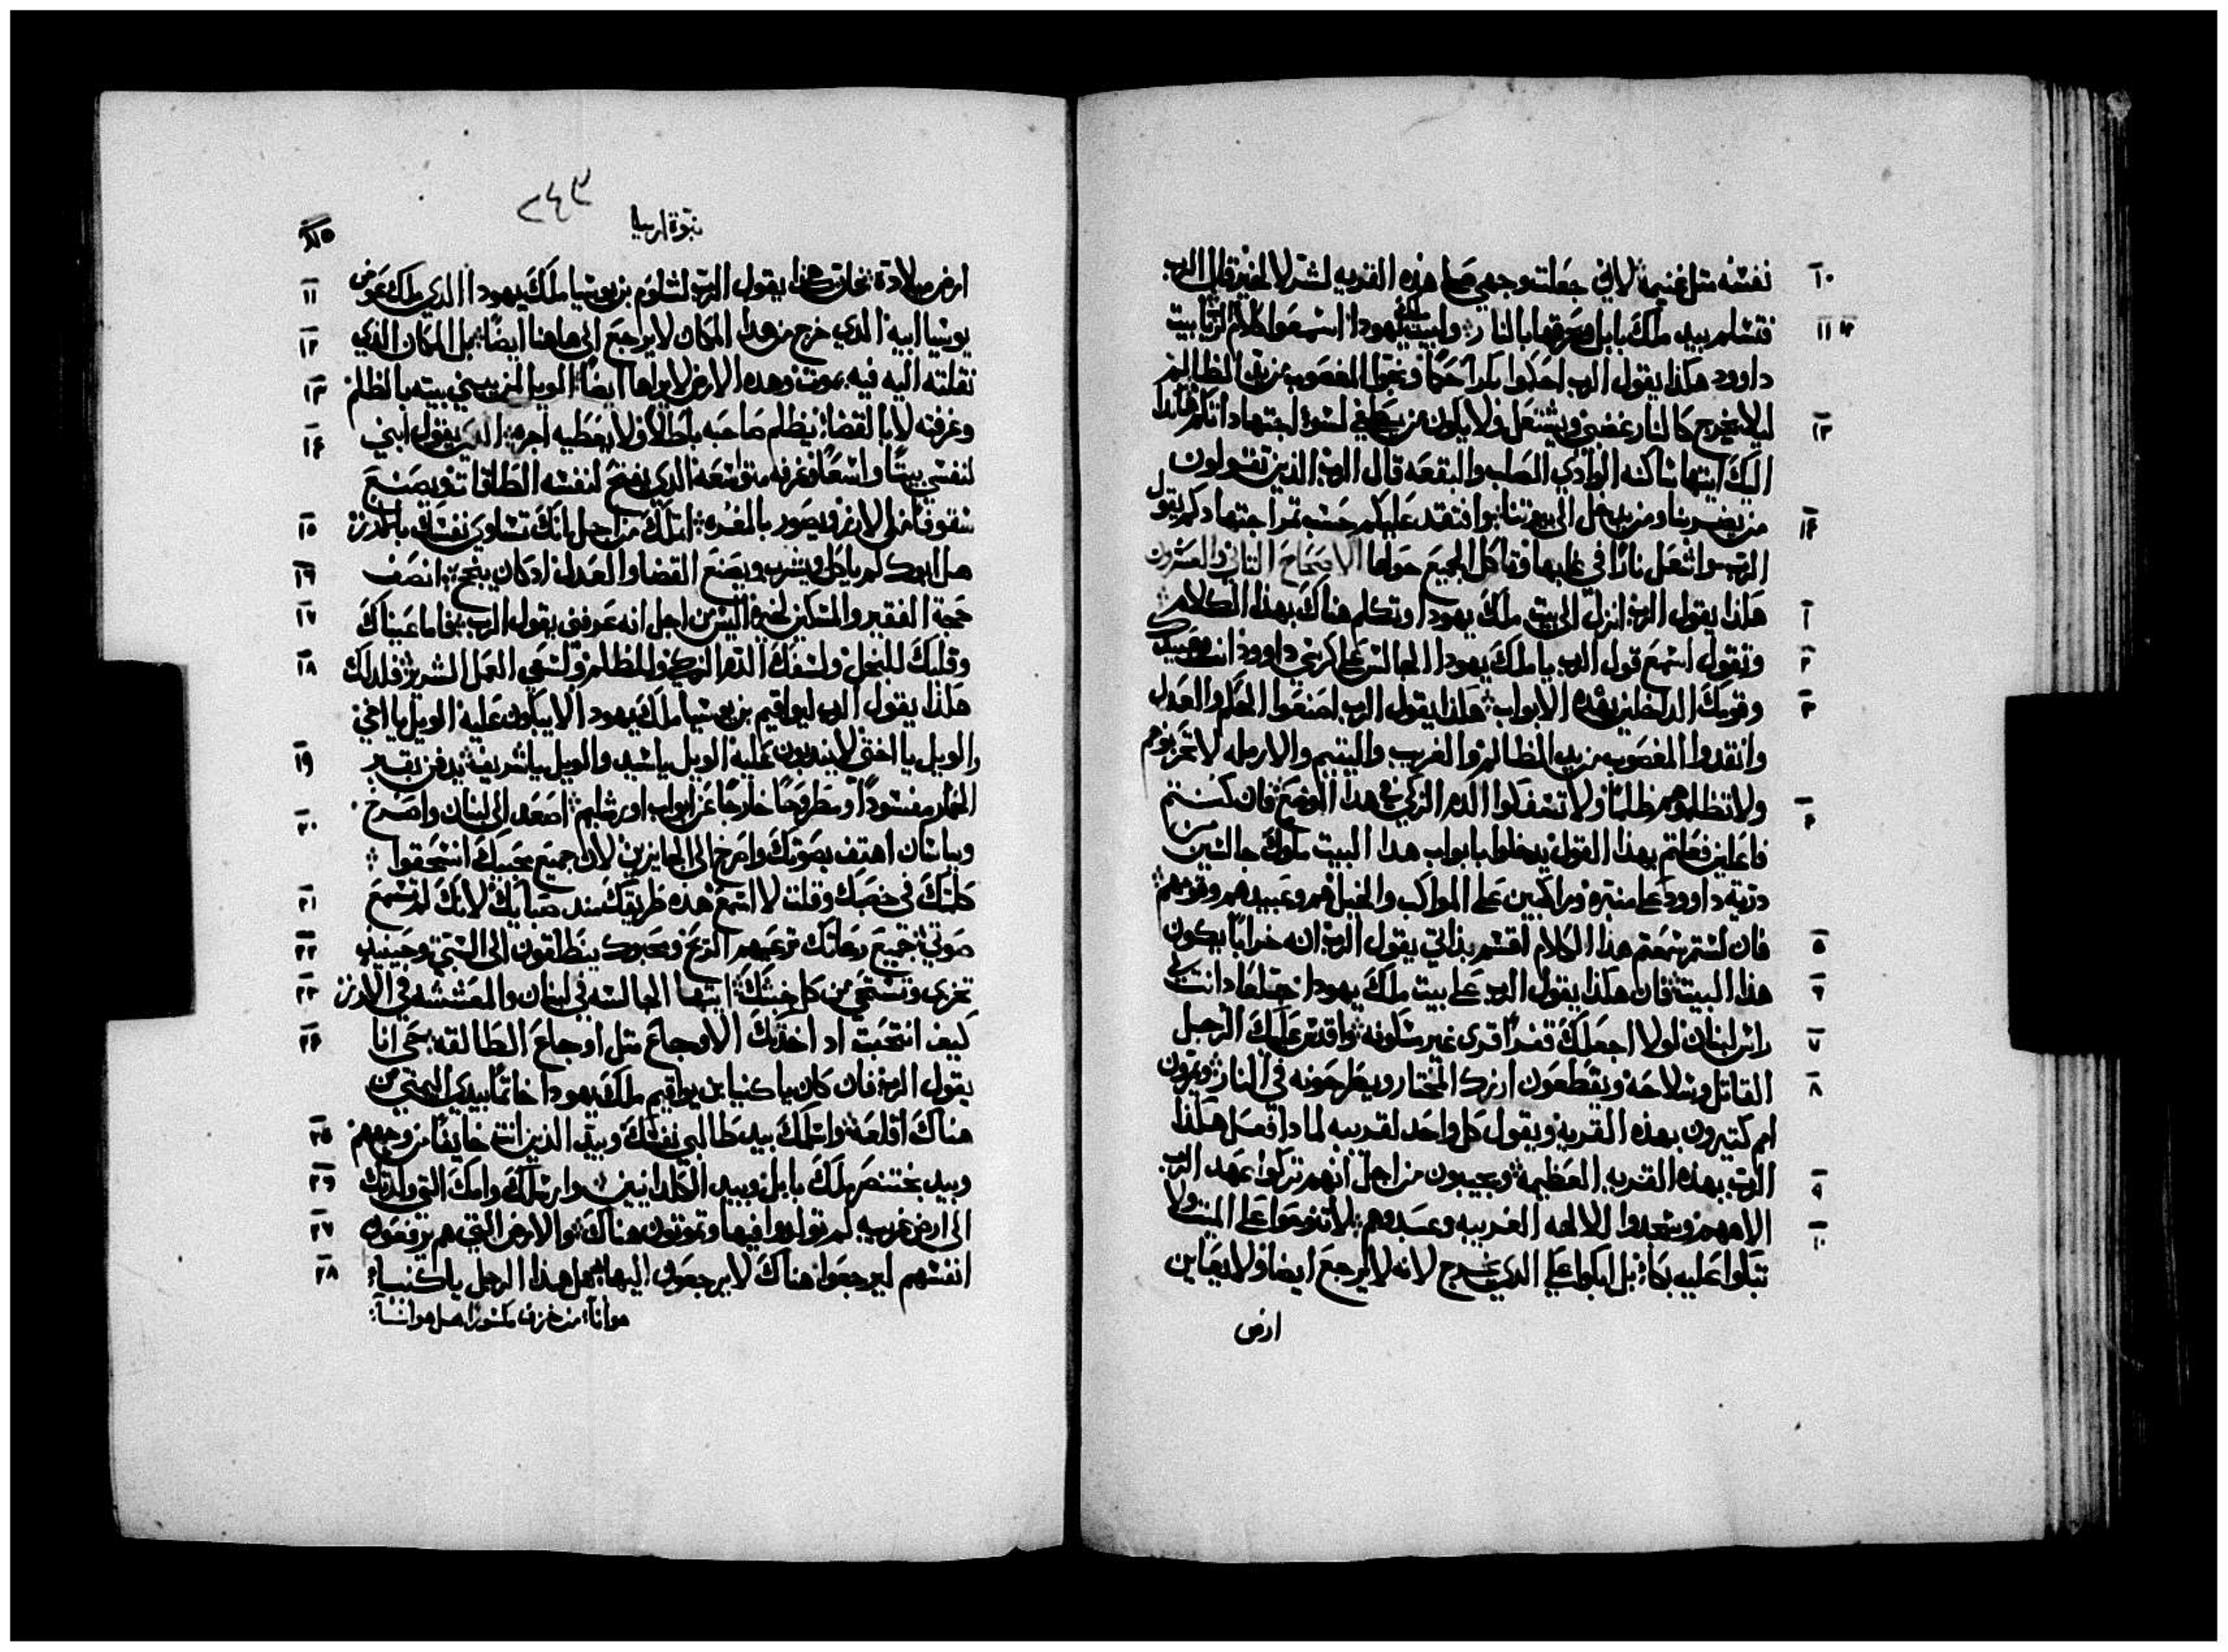 نفسه مثل غنيمة لاني جعلت وجهي على هذه القريه لشر لا لخير قال الرب
فتسلم بيد ملك بابل ويحرقها بالنار ولبيت ملك يهودا اسمعوا كلام الرب يا بيت
داوود هكذا يقول الرب احكموا بكرا حكما ونجوا المغصوب من يد الظالم
ليلا يخرج كالنار غضبي ويشتعل ولا يكون من يطفي لسو اجتهاداتكم هاندا
اليك ايتها ساكنه الوادي الصلب والبقعه قال الرب الذين تقولون
من يضربنا ومن يدخل الى بيوتنا وافتقد عليكم حسب تمر اجتهادكم يقول
الرب واشعل نارا في غابها فتاكل الجميع حولها الاصحاح الثاني والعشرون
هكذا يقول الرب انزل الى بيت ملك يهودا وتكلم هناك بهذا الكلام
وتقول اسمع قول الرب يا ملك يهودا الجالس على كرسي داوود انت وعبيدك
وقومك الداخلين بهذه الابواب هكذا يقول الرب اصنعوا الحكم والعدل
وانقدوا المغصوب من يد الظالم والغريب واليتيم والارمله لا تحزنوهم
ولا تظلموهم ظلما ولا تسفكوا الدم الزكي في هدا الموضع فان كنتم
فاعلين فعلتم بهذا القول يدخلوا بابواب هدا البيت ملوك جالسين من
درية داوود على منبره وراكبين على المواكب والخيل هم وعبيدهم وقومهم
فان لستم سمعتم هذا الكلام اقسم بذاتي يقول الرب انه خرابا يكون
هذا البيت فان هكذا يقول الرب على بيت ملك يهودا جلعاد انت لي
راس لبنان لولا اجعلك قفرا قرى غير مسكونه واقدس عليك الرجل
القاتل وسلاحه ويقطعون ارزك المختار ويطرحونه في النار ويمرون
امم كتيرون بهذه القريه ويقول كل واحد لقريبه لمادا فعل هكذا
الرب بهذه القريه العظيمة ويجيبون من اجل انهم تركوا عهد الرب
الاههم وسجدوا للالهه الغريبه وعبدوهم لا تنوحوا على الميت ولا
تبكوا عليه بكاء بل ابكوا على الدي يخرج لانه لا يرجع ايضا ولا يعاين
ارض
٢٤٣
نبوة ارميا
ارض ميلادة فان هكذا يقول الرب لشلوم بن يوشيا ملك يهودا الدي ملك عوض
يوشيا ابيه الدي خرج من هدا المكان لا يرجع الى هاهنا ايضا بل المكان الذي
نقلته اليه فيه يموت وهده الارض لا يراها ايضا الويل لمن يبني بيته بالظلم
وغرفته لا بالقضاء يظلم صاحبه باطلا ولا يعطيه اجره الذي يقول ابني
لنفسي بيتا واسعا وغرفه متواسعة الدي يفتح لنفسه الطاقات ويصنع
سقوفا من الارز ويصور بالمغره اتملك من اجل انك تساوي نفسك بالارز
هل ابوك لم ياكل ويشرب ويصنع القضا والعدل اد كان ينجح انصف
حجة الفقير والمسكين لخيره اليس من اجل انه عرفني يقول الرب فاما عيناك
وقلبك للبخل ولسفك الدم الزكي وللظلم ولسعي العمل الشرير فلدلك
هكذا يقول الرب ليواقيم بن يوشيا ملك يهودا لا يبكون عليه الويل يا اخي
والويل يا اختي لا يندبون عليه الويل يا سيد والويل يا شريف يدفن بقبر
الحمار مفسودا ومطروحا خارجا عن ابواب اورشليم اصعد الى لبنان واصرخ
وبباشان اهتف بصوتك واصرخ الى الجايزين لان جميع محبيك انسحقوا
كلمتك في خصبك وقلت لا اسمع هذه طريقك مند صباك لانك لم تسمع
صوتي جميع رعاتك ترعيهم الريح ومحبوك ينطلقون الى السبي وحينيد
تخزى وتستحي من كل خبثك ايتها الجالسه في لبنان والمعششه في الارز
كيف انتحبت اد اخدتك الاوجاع مثل اوجاع الطالقه حي انا
يقول الرب فان كان ياكنيا بن يواقيم ملك يهودا خاتما بيدي اليمنى من
هناك اقلعه واسلمك بيد طالبي نفسك وبيد الذين انت خايفا من وجههم
وبيد بختنصر ملك بابل وبيد الكلدانيين وارسلك وامك التي ولدتك
الى ارض غريبه لم تولدوا فيها وتموتون هناك والارض التي هم يرفعون
انفسهم ليرجعوا هناك لا يرجعون اليها هل هدا الرجل ياكنيا
هو اناء من خزف مكسورا هل هو اناء